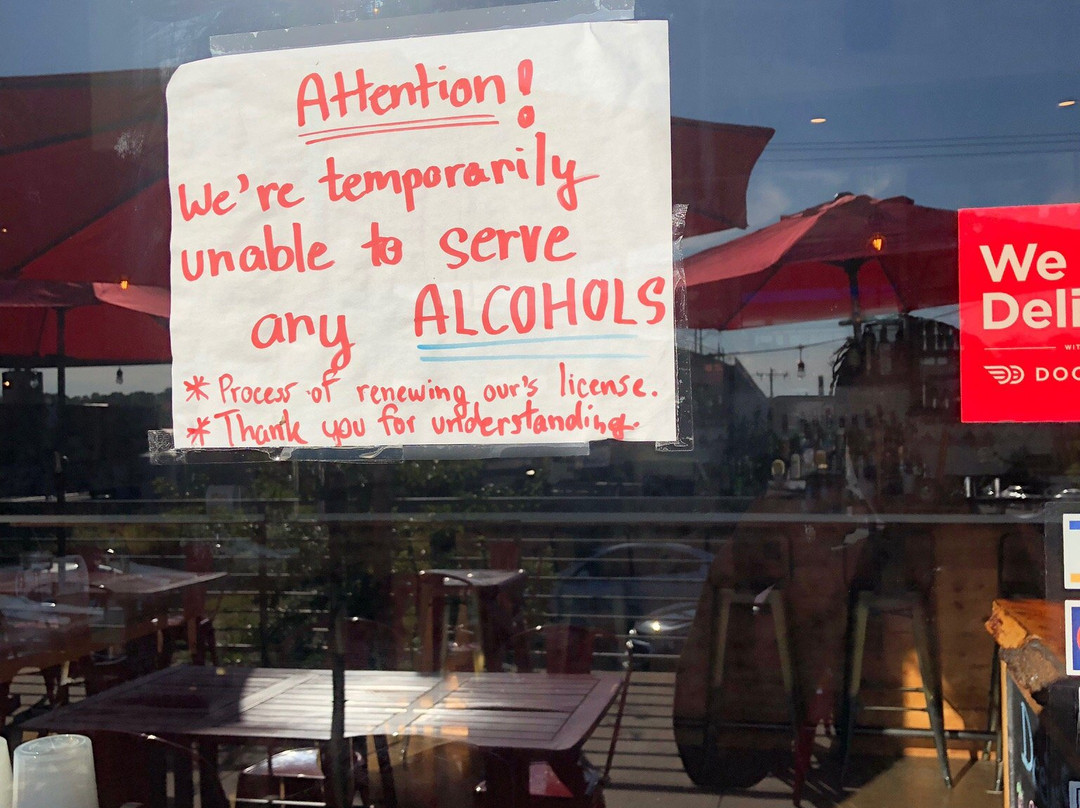 Attention!
We're temporarily
unable to serve
any ALCOHOLS
* Process of renewing our's license.
* Thank you for understanding.
We